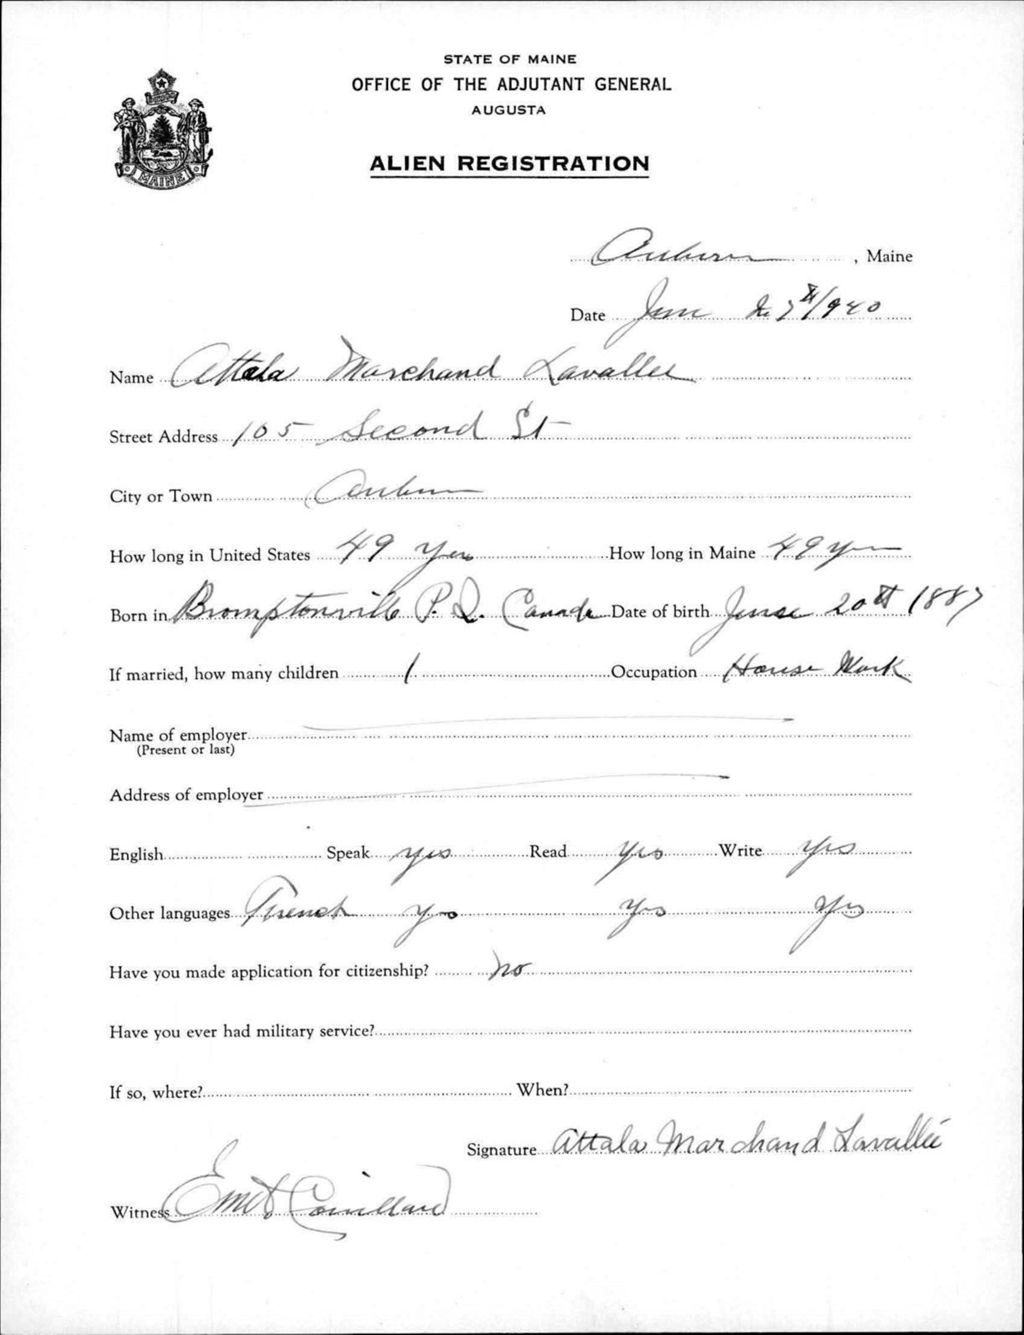 STATE OF MAINE
OFFICE OF THE ADJUTANT GENERAL
AUGUSTA
MAINE
ALIEN REGISTRATION
Auburn, Maine
Date June 27th 1940
Name Attala Marchand Lavallee
Street Address 105 Second St
City or Town Auburn
How long in United States 49 Yrs How long in Maine 49 yrs
Born in Bromptonville P. Q. Canada Date of birth June 20th 1887
If married, how many children 1 Occupation House Work
Name of employer
(Present or last)
Address of employer
English Speak yes Read yes Write yes
Other languages French yes yes yes
Have you made application for citizenship? no
Have you ever had military service?
If so, where? When?
Signature Attala Marchand Lavallée
Witness